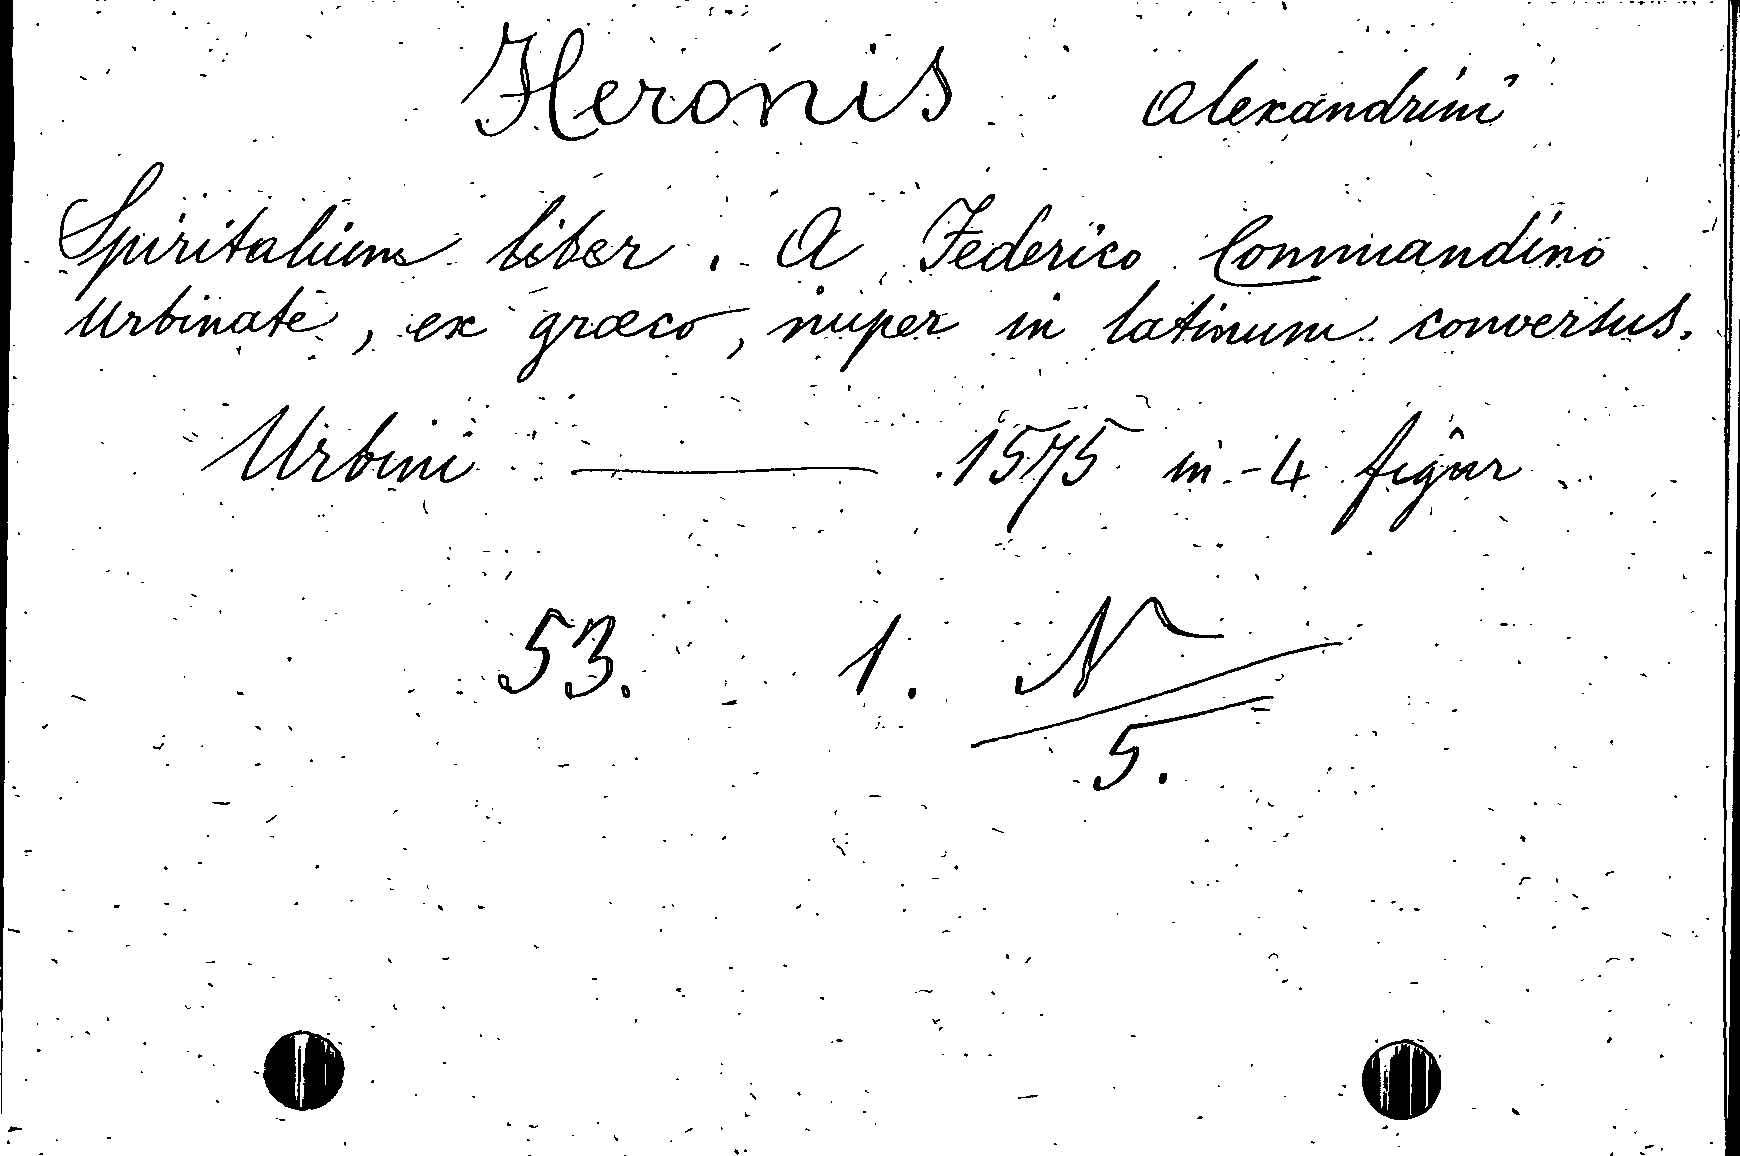 Heronis Alexandrini
Spiritalium liber. A Federico Commandino
Urbinate, ex græco, nuper in latinum conversus.
Urbini — 1575 in-4 figur
53. 1. N
5.